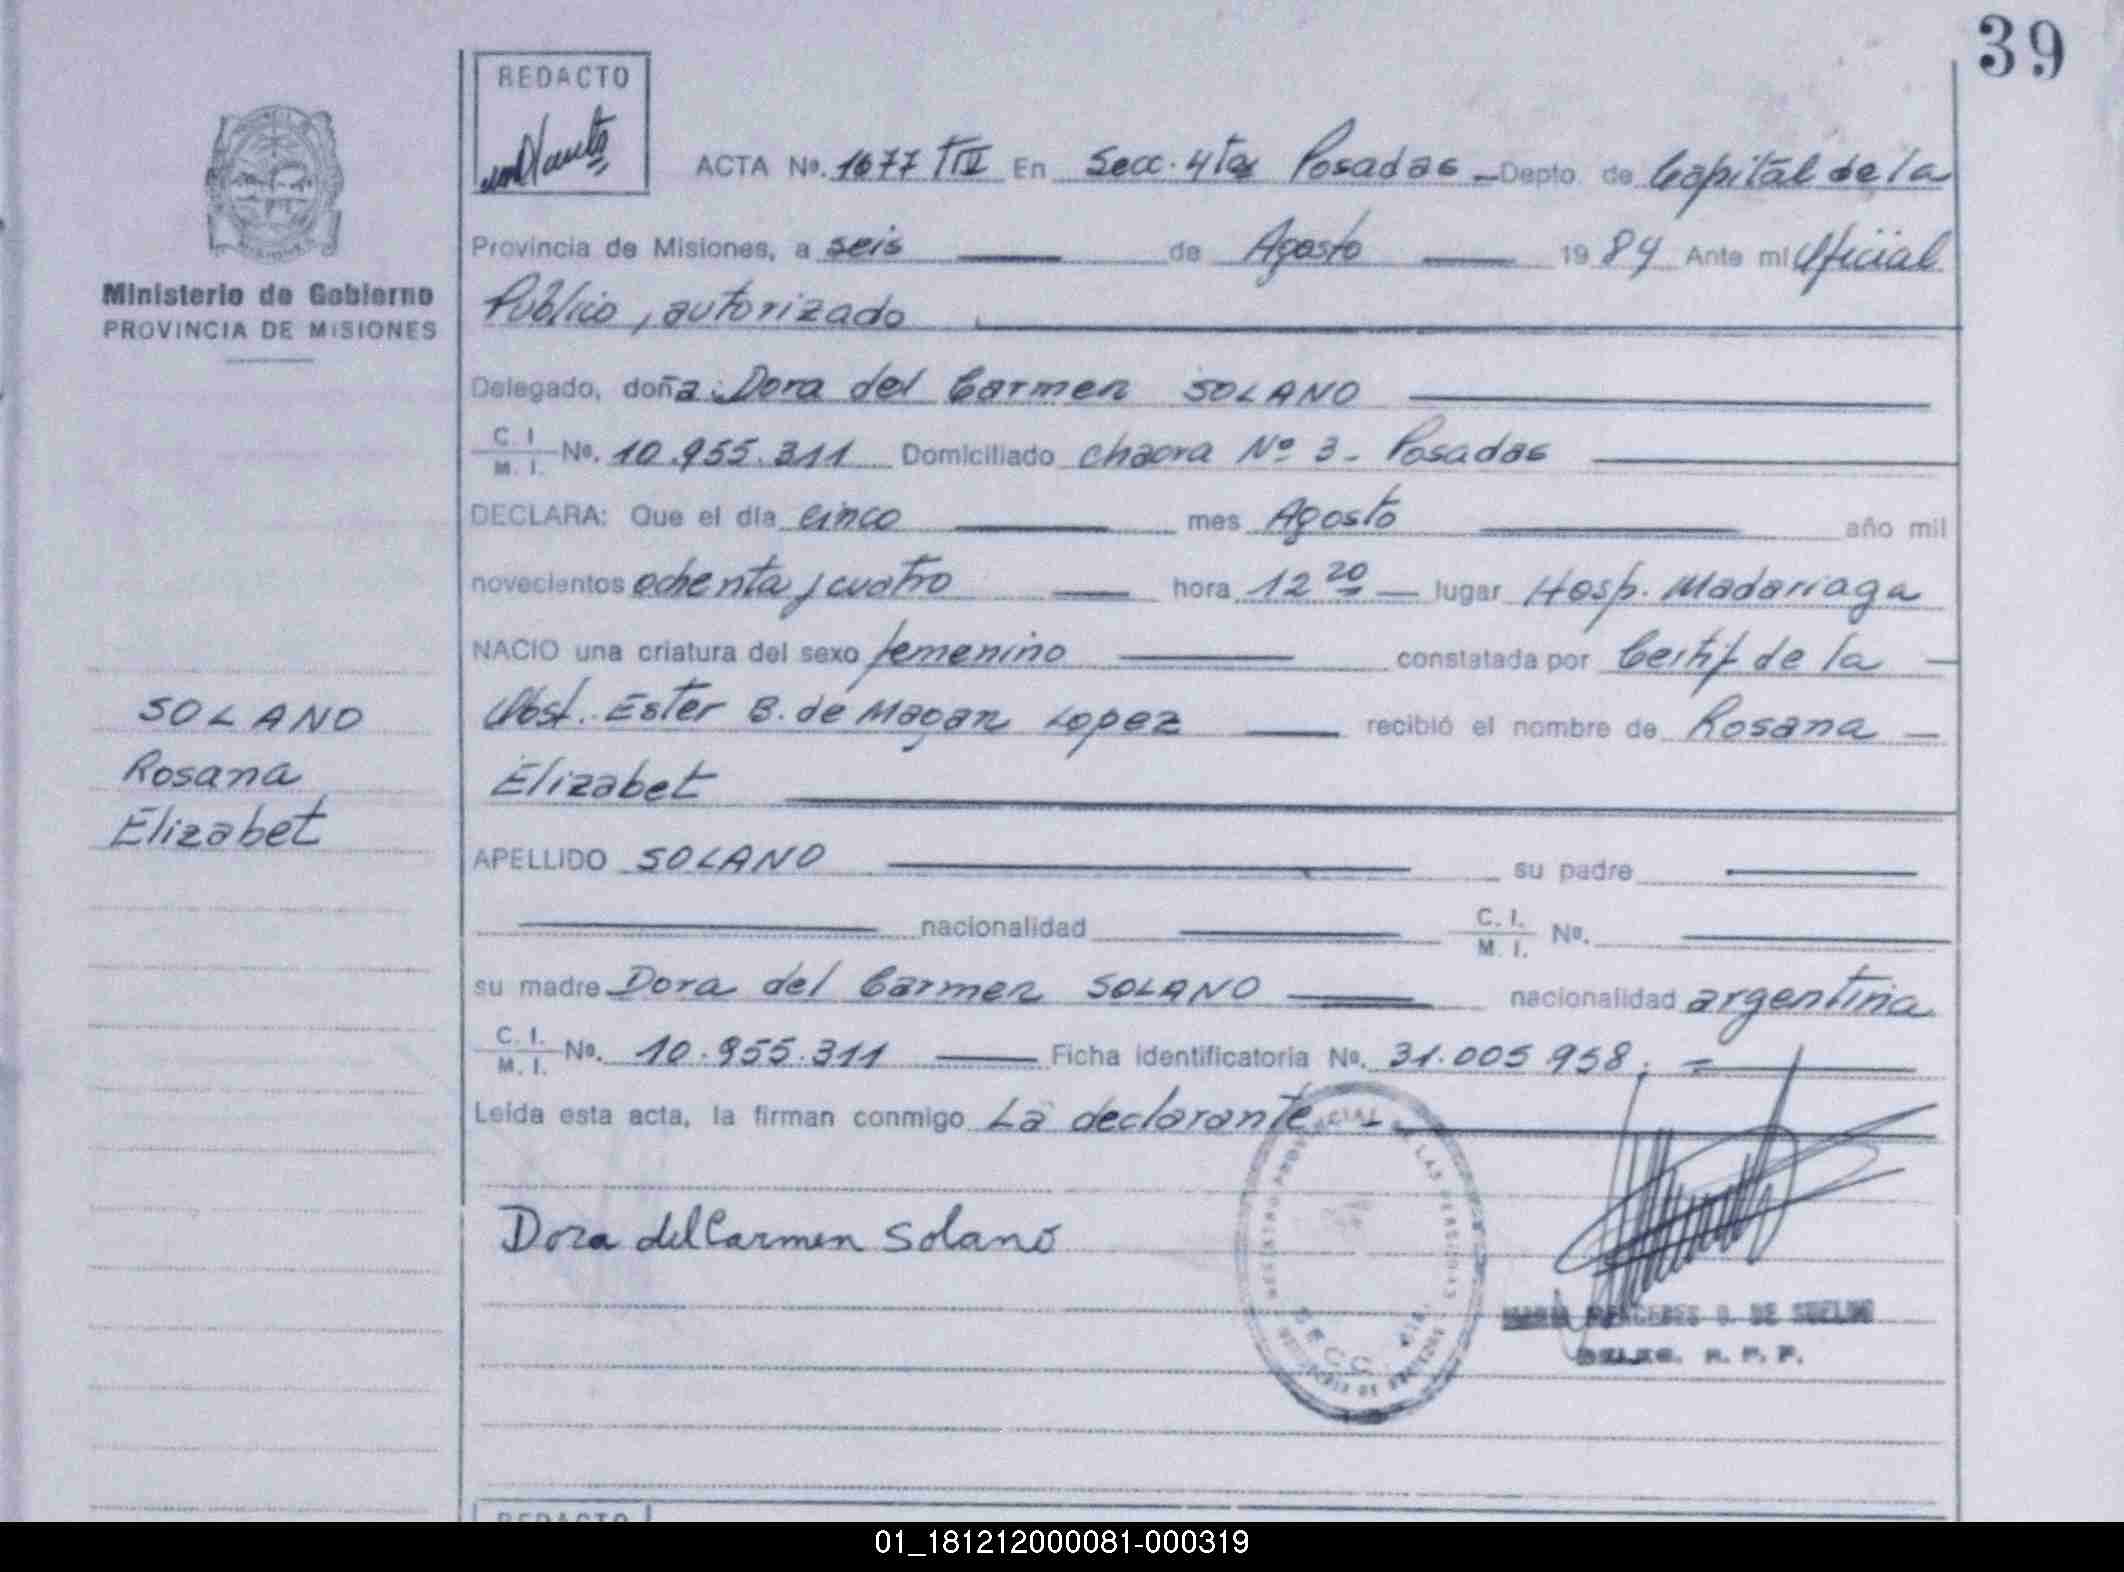 39
REDACTO
ACTA No. 1677 TIV En Secc. 4ta Posadas - Depto. de Capital de la
Provincia de Misiones, a seis de Agosto 1984 Ante mi Oficial
Ministerio de Gobierno
PROVINCIA DE MISIONES
Público, autorizado
Delegado, doña: Dora del Carmen SOLANO
C. I. / M. I. No. 10.955.311 Domiciliado chacra Nº 3 - Posadas
DECLARA: Que el día cinco mes Agosto año mil
novecientos ochenta y cuatro hora 12 20 lugar Hosp. Madariaga
NACIO una criatura del sexo femenino constatada por Certif de la
Obst. Ester B. de Magan Lopez recibió el nombre de Rosana
Elizabet
SOLANO
Rosana
Elizabet
APELLIDO SOLANO su padre
nacionalidad C. I. / M. I. No.
su madre Dora del Carmen SOLANO nacionalidad argentina
C. I. / M. I. No. 10.955.311 Ficha identificatoria No. 31.005 958; =
Leída esta acta, la firman conmigo La declarante -
Dora del Carmen Solano
REGISTRO PROVINCIAL DE LAS PERSONAS
DE SUELDO
DELEG. R. P. P.
REDACTO
01_181212000081-000319